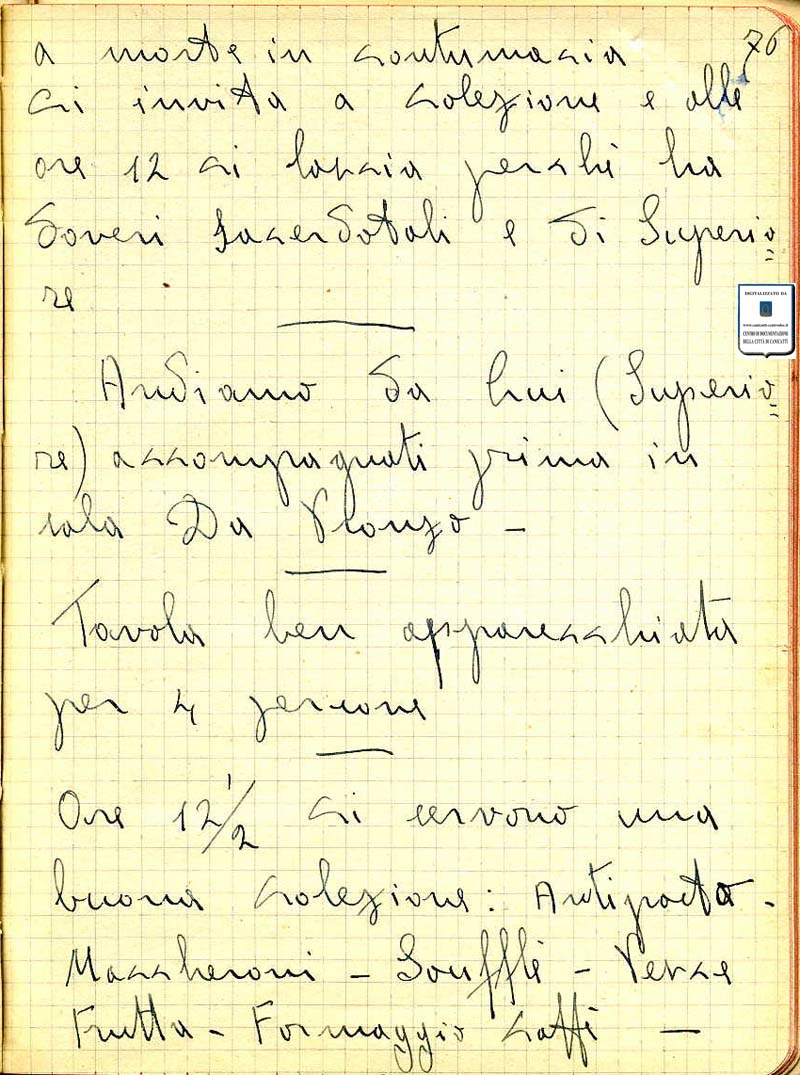 76
a morte in contumacia
ci invita a colezione e alle
ore 12 ci lascia perchè ha
doveri sacerdotali e di Superio
re
DIGITALIZZATO DA
CENTRO DI DOCUMENTAZIONE
DELLA CITTÀ DI CANICATTÌ
Andiamo da lui (Superio
re) accompagnati prima in
sala Da
Tavola ben apparecchiata
per 4 persone
Ore 12 1/2 ci servono una
buona colezione: Antipasto -
Maccheroni - Soufflè - Pesce
Frutta - Formaggio caffè —